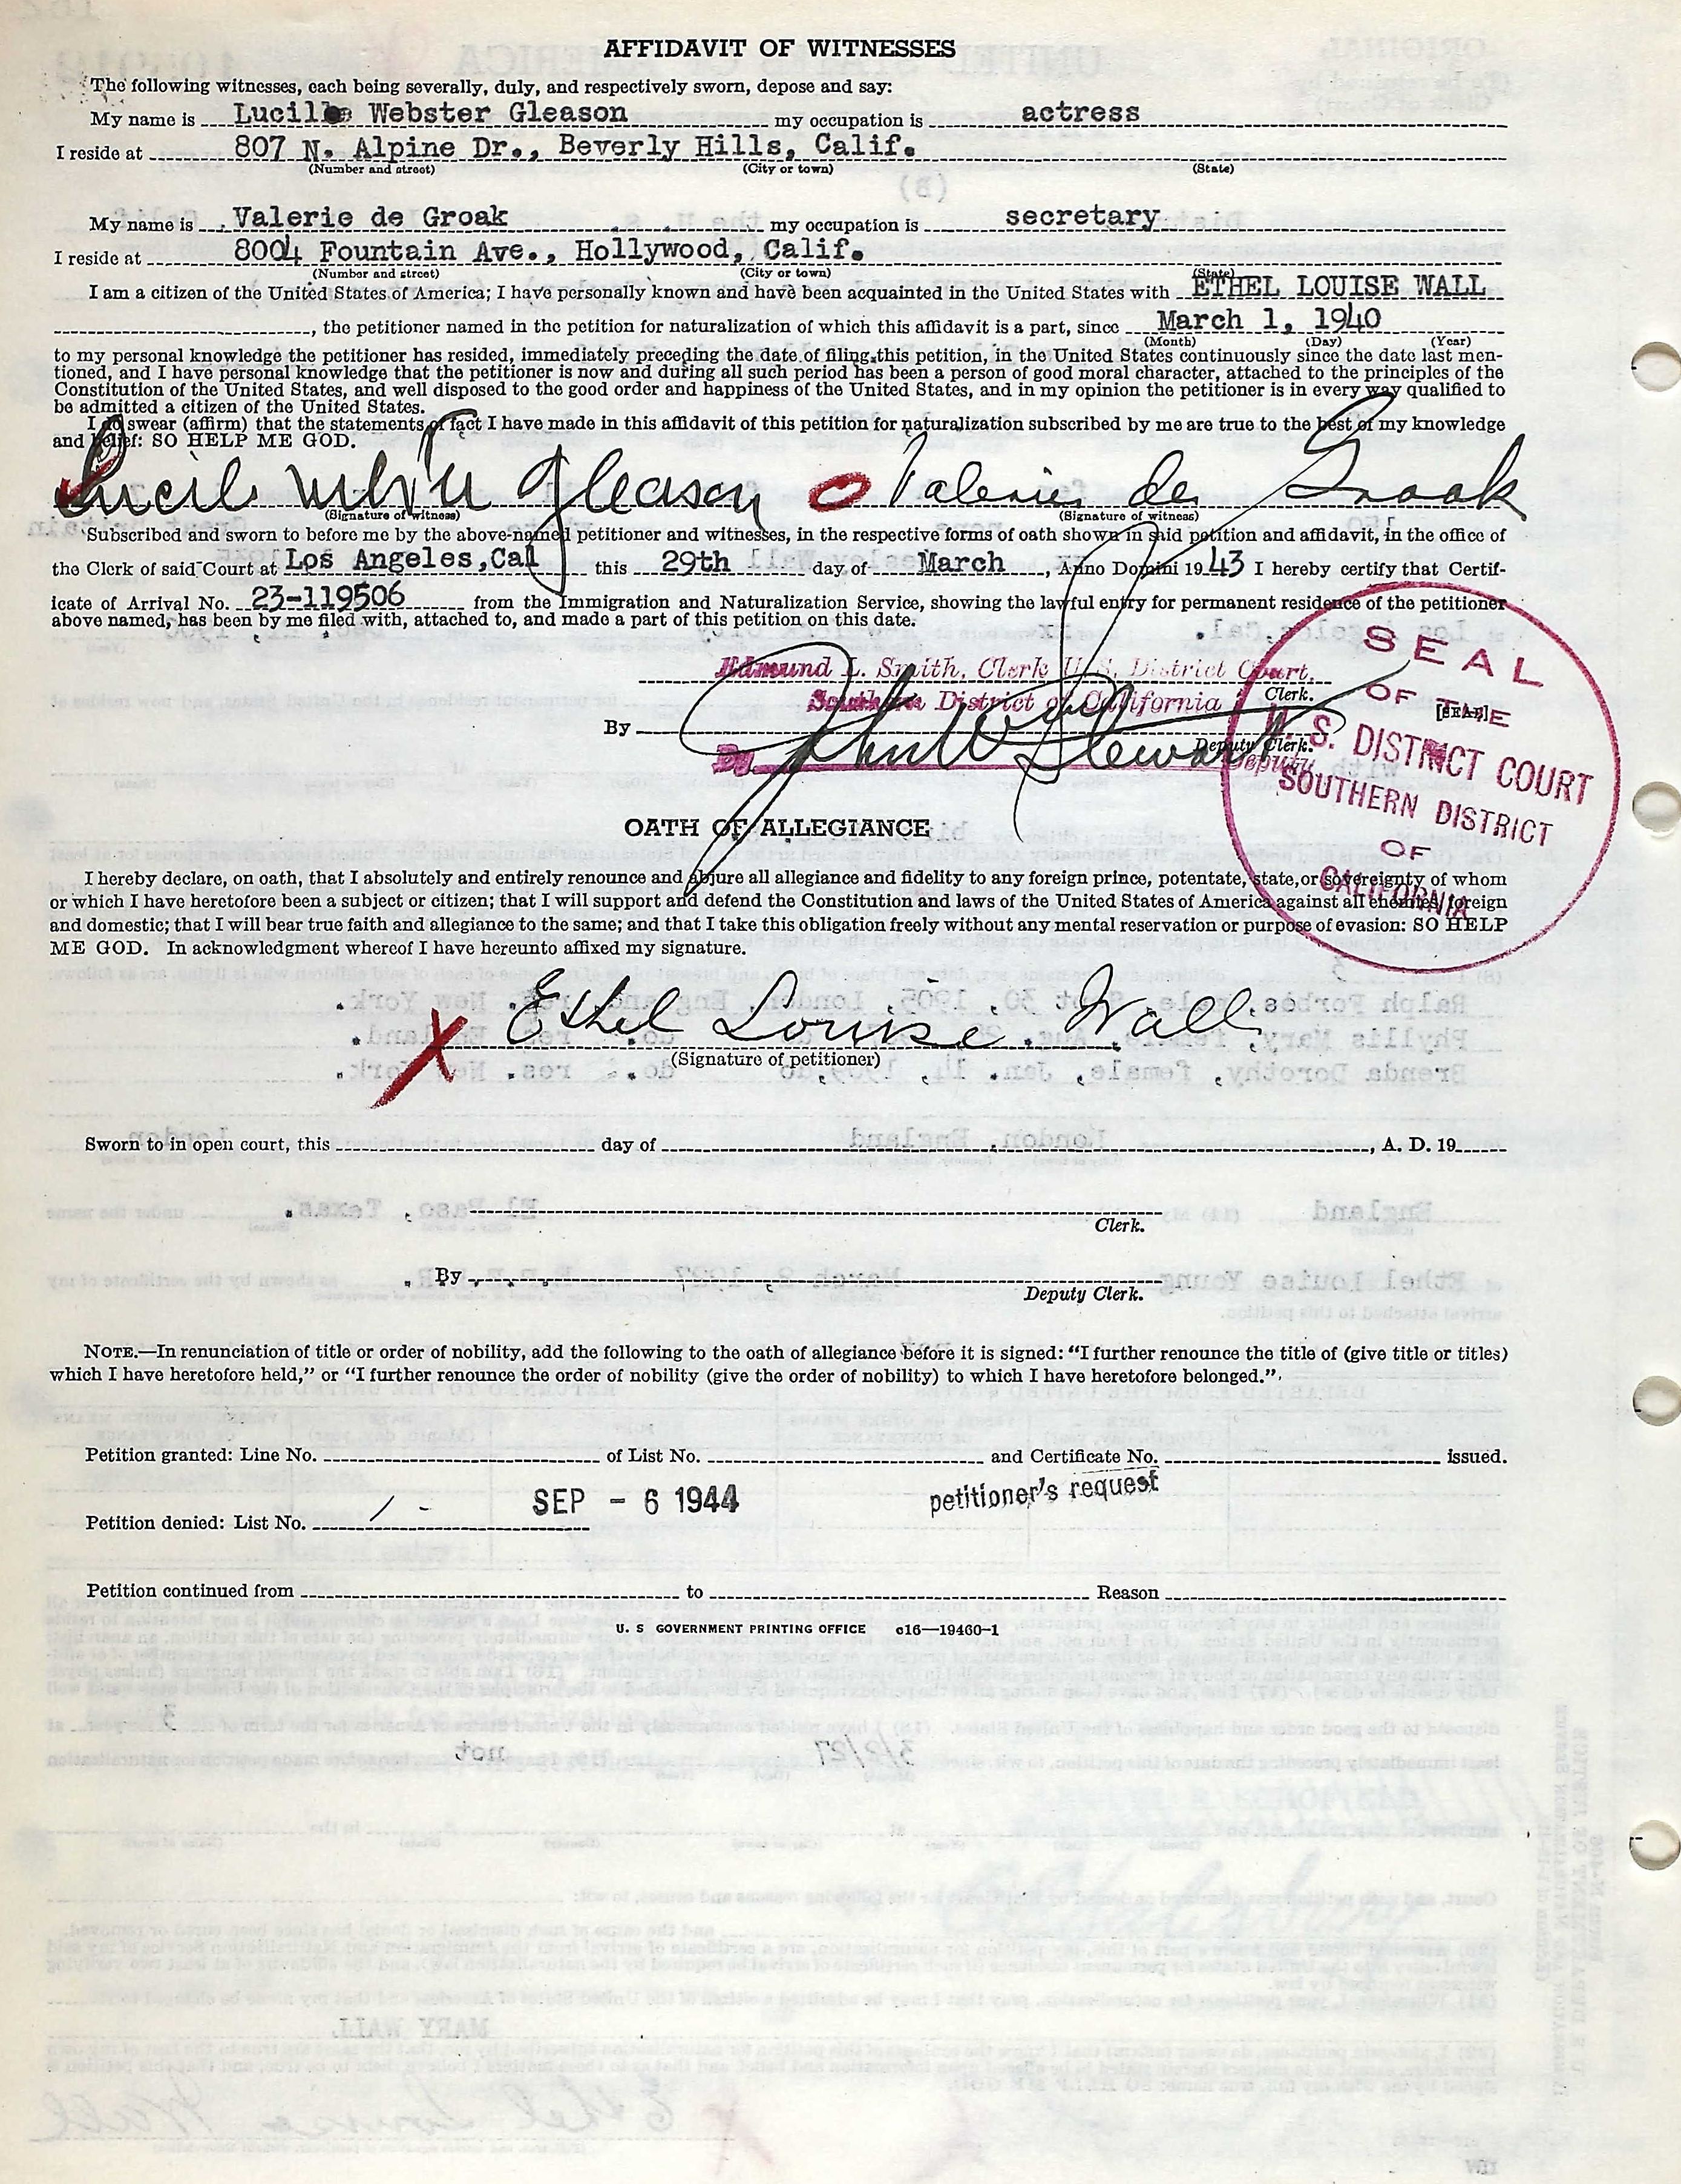 AFFIDAVIT OF WITNESSES
The following witnesses, each being severally, duly, and respectively sworn, depose and say:
My name is Lucille Webster Gleason my occupation is actress
I reside at 807 N. Alpine Dr., Beverly Hills, Calif.
(Number and street) (City or town) (State)
My name is Valerie de Groak my occupation is secretary
I reside at 8004 Fountain Ave., Hollywood, Calif.
(Number and street) (City or town) (State)
I am a citizen of the United States of America; I have personally known and have been acquainted in the United States with ETHEL LOUISE WALL
, the petitioner named in the petition for naturalization of which this affidavit is a part, since March 1, 1940
(Month) (Day) (Year)
to my personal knowledge the petitioner has resided, immediately preceding the date of filing this petition, in the United States continuously since the date last men-
tioned, and I have personal knowledge that the petitioner is now and during all such period has been a person of good moral character, attached to the principles of the
Constitution of the United States, and well disposed to the good order and happiness of the United States, and in my opinion the petitioner is in every way qualified to
be admitted a citizen of the United States.
I do swear (affirm) that the statements of fact I have made in this affidavit of this petition for naturalization subscribed by me are true to the best of my knowledge
and belief: SO HELP ME GOD.
Lucile Webster Gleason Valerie de Groak
(Signature of witness) (Signature of witness)
Subscribed and sworn to before me by the above-named petitioner and witnesses, in the respective forms of oath shown in said petition and affidavit, in the office of
the Clerk of said Court at Los Angeles, Cal this 29th day of March, Anno Domini 1943 I hereby certify that Certif-
icate of Arrival No. 23-119506 from the Immigration and Naturalization Service, showing the lawful entry for permanent residence of the petitioner
above named, has been by me filed with, attached to, and made a part of this petition on this date.
Edmund L. Smith, Clerk U.S. District Court,
Clerk.
Southern District of California
[SEAL]
By John W Stewart
Deputy Clerk.
By Deputy
SEAL
OF THE
U. S. DISTRICT COURT
SOUTHERN DISTRICT
OF
CALIFORNIA
OATH OF ALLEGIANCE
I hereby declare, on oath, that I absolutely and entirely renounce and abjure all allegiance and fidelity to any foreign prince, potentate, state, or sovereignty of whom
or which I have heretofore been a subject or citizen; that I will support and defend the Constitution and laws of the United States of America against all enemies, foreign
and domestic; that I will bear true faith and allegiance to the same; and that I take this obligation freely without any mental reservation or purpose of evasion: SO HELP
ME GOD. In acknowledgment whereof I have hereunto affixed my signature.
X Ethel Louise Wall
(Signature of petitioner)
Sworn to in open court, this day of , A. D. 19
Clerk.
By
Deputy Clerk.
NOTE.—In renunciation of title or order of nobility, add the following to the oath of allegiance before it is signed: "I further renounce the title of (give title or titles)
which I have heretofore held," or "I further renounce the order of nobility (give the order of nobility) to which I have heretofore belonged."
Petition granted: Line No. of List No. and Certificate No. issued.
SEP - 6 1944 petitioner's request
Petition denied: List No. 1 -
Petition continued from to Reason
U. S GOVERNMENT PRINTING OFFICE c16—19460-1